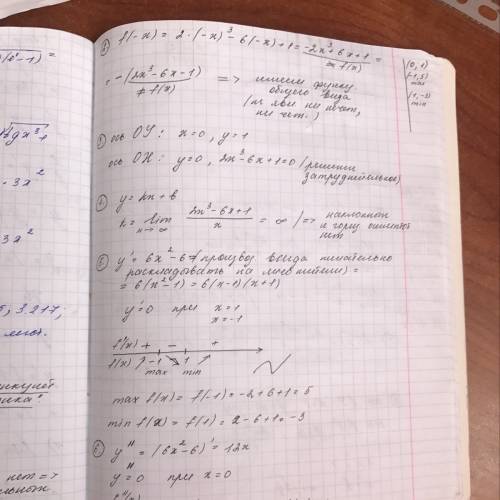 f(-x) = 2·(-x)³-6(-x)+1 = -2x³+6x+1 =
≠ f(x)
= -(2x³-6x-1) => имеем функц
≠ f(x)
общего вида
(не явл ни нечет,
ни чет.)
(0, 1)
(-1, 5)
max
(1, -3)
min
ось ОУ: x=0, y=1
ось ОХ: y=0, 2x³-6x+1=0 (решение
затруднительно)
y = kx + b
k = lim 2x³-6x+1 / x = ∞ => наклонных
x→∞
и гориз
нет
y' = 6x²-6 = (производ. всегда желательно
раскладывать на множители) =
= 6(x²-1) = 6(x-1)(x+1)
y'=0 при x=1
x=-1
f'(x) + - +
f(x) ↗ -1 ↘ 1 ↗
max min
max f(x) = f(-1) = -2+6+1 = 5
min f(x) = f(1) = 2-6+1 = -3
y'' = (6x²-6)' = 12x
y''=0 при x=0
- 3x²
3x²
5; 3.217,
нет =>